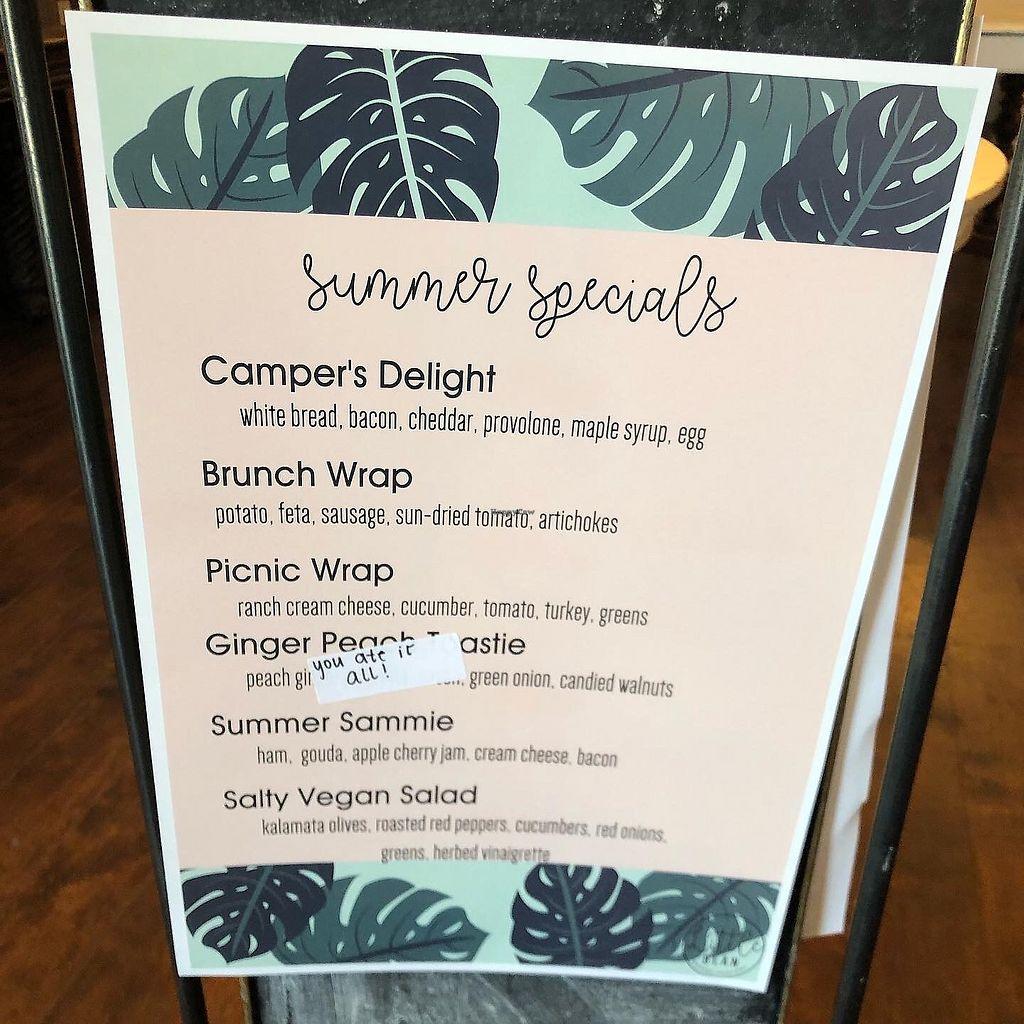 summer specials
Camper's Delight
white bread, bacon, cheddar, provolone, maple syrup, egg
Brunch Wrap
potato, feta, sausage, sun-dried tomato, artichokes
Picnic Wrap
ranch cream cheese, cucumber, tomato, turkey, greens
Ginger Peach Toastie
you ate it
all!
peach green onion, candied walnuts
Summer Sammie
ham, gouda, apple cherry jam, cream cheese, bacon
Salty Vegan Salad
kalamata olives, roasted red peppers, cucumbers, red onions,
greens, herbed vinaigrette
BEAN